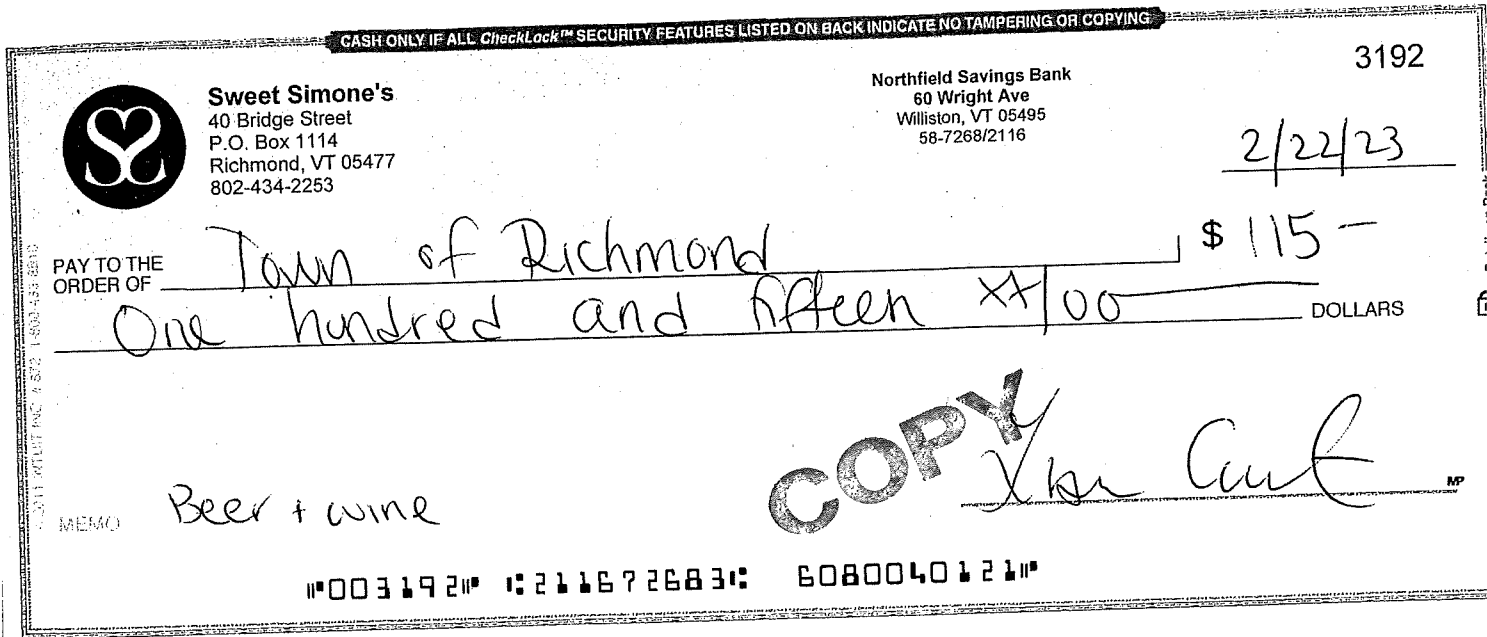 CASH ONLY IF ALL CheckLock™ SECURITY FEATURES LISTED ON BACK INDICATE NO TAMPERING OR COPYING
3192
Sweet Simone's
40 Bridge Street
P.O. Box 1114
Richmond, VT 05477
802-434-2253
Northfield Savings Bank
60 Wright Ave
Williston, VT 05495
58-7268/2116
2/22/23
PAY TO THE ORDER OF Town of Richmond $ 115 –
One hundred and fifteen xx/00 DOLLARS
COPY
MEMO Beer + wine
MP
⑈003192⑈ ⑆211672683⑆ 6080040121⑈